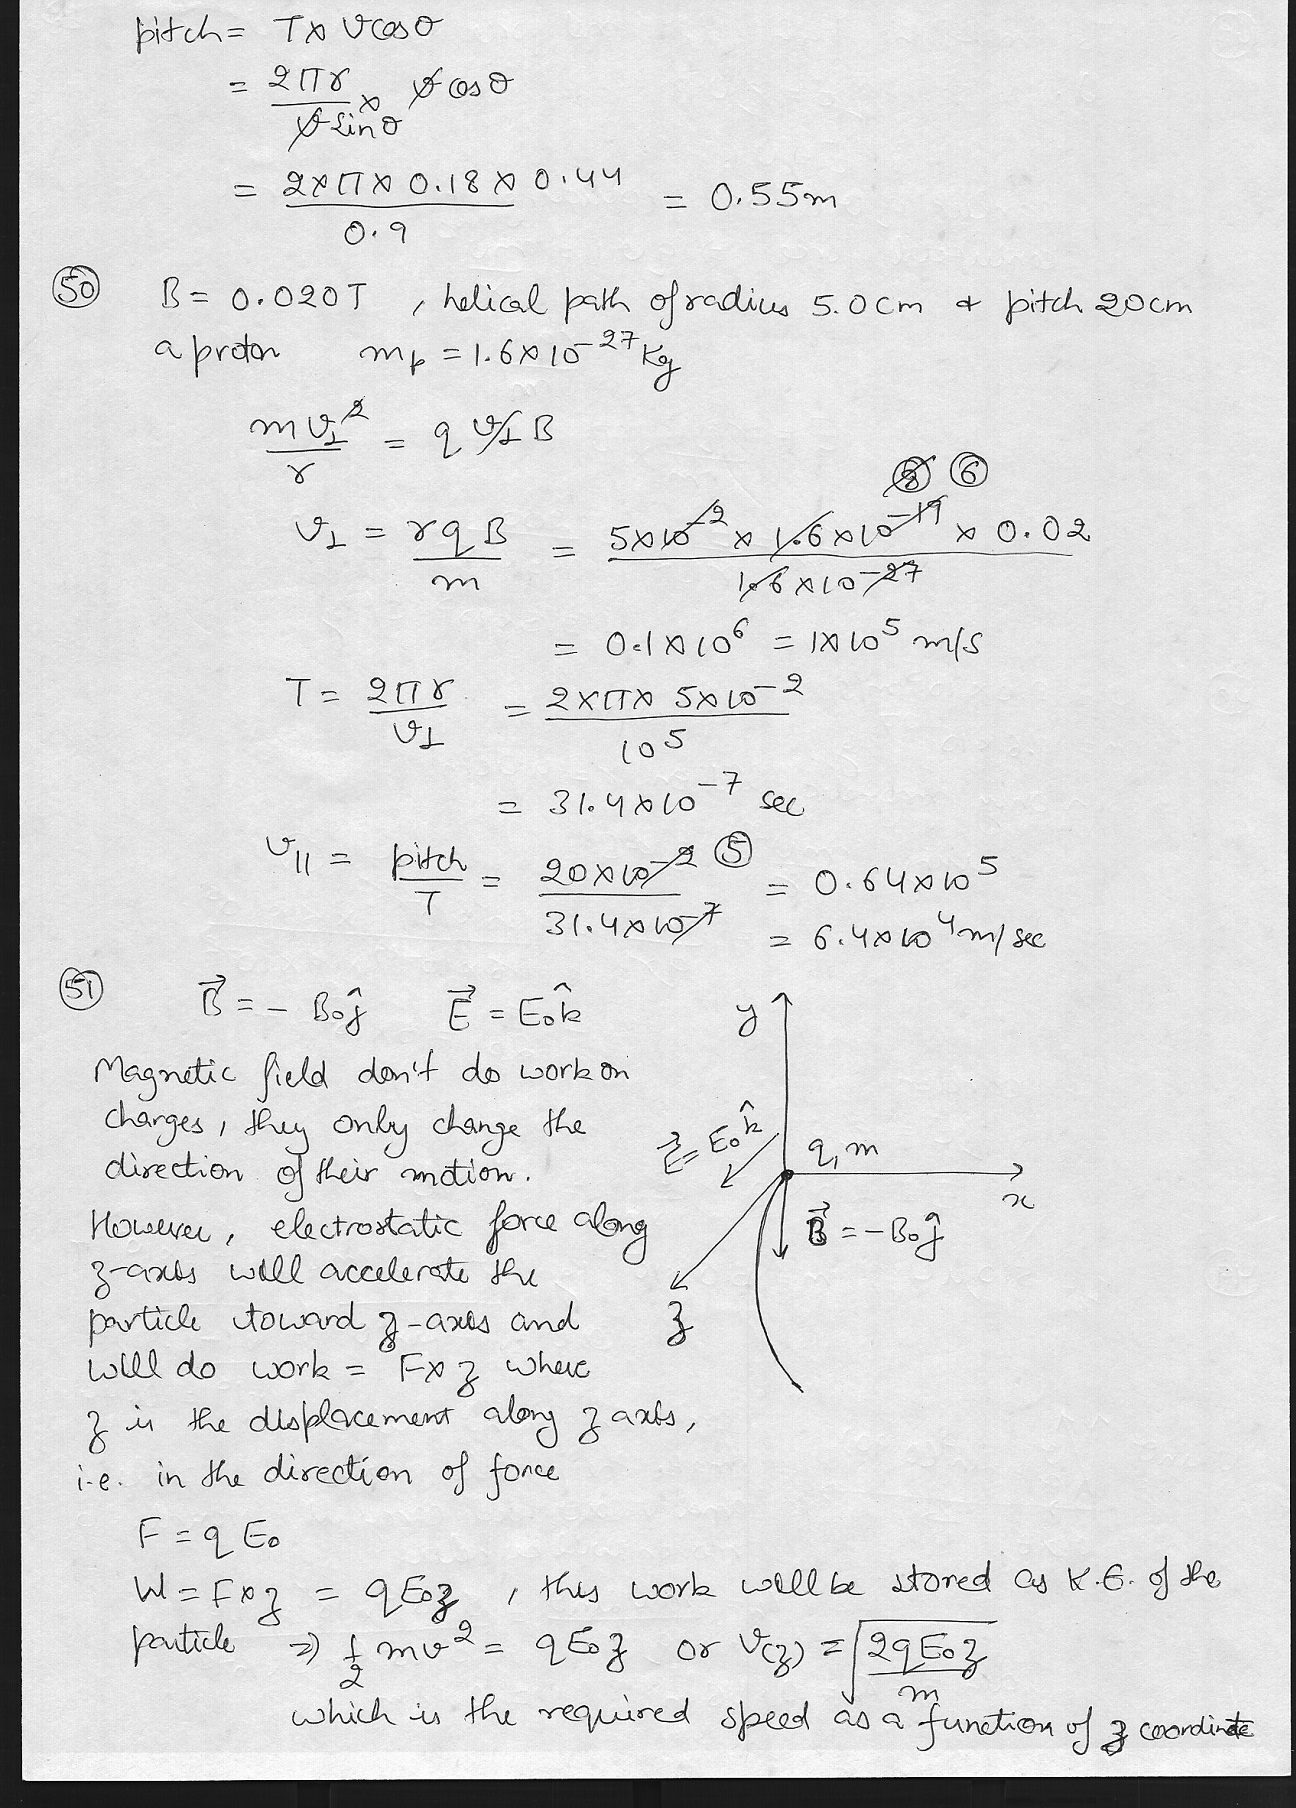 pitch = T × v cosθ
= 2πr / v sinθ × v cosθ
= 2×π× 0.18 × 0.44 / 0.9 = 0.55m
50 B = 0.020T , helical path of radius 5.0cm & pitch 20cm
a proton mp = 1.6×10⁻²⁷ Kg
mv⊥² / r = q v⊥ B
8 6
v⊥ = rqB / m = 5×10⁻² × 1.6×10⁻¹⁹ × 0.02 / 1.6×10⁻²⁷
= 0.1×10⁶ = 1×10⁵ m/s
T = 2πr / v⊥ = 2×π× 5×10⁻² / 10⁵
= 31.4×10⁻⁷ sec
v|| = pitch / T = 20×10⁻² / 31.4×10⁻⁷ 5 = 0.64×10⁵
= 6.4×10⁴ m/sec
51 B⃗ = - B₀ĵ E⃗ = E₀k̂
y
Magnetic field don't do work on
charges, they only change the
direction of their motion.
E⃗ = E₀k̂ q, m
x
However, electrostatic force along
B⃗ = -B₀ĵ
z-axis will accelerate the
particle toward z-axis and
z
will do work = F×z where
z is the displacement along z axis,
i.e. in the direction of force
F = qE₀
W = F×z = qE₀z , this work will be stored as K.E. of the
particle ⇒ 1/2 mv² = qE₀z or v(z) = √(2qE₀z / m)
which is the required speed as a function of z coordinate